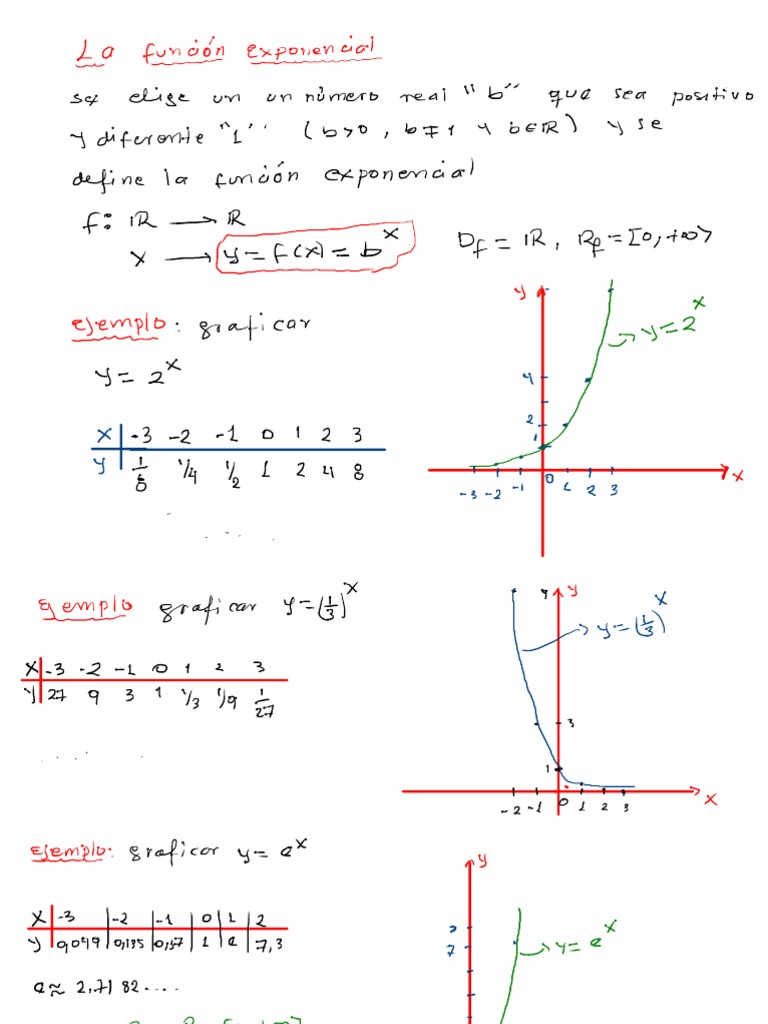 La función exponencial
se elige un un número real "b" que sea positivo
y diferente "1" (b>0, b≠1 y b∈ℝ) y se
define la función exponencial
f: ℝ → ℝ
x → y = f(x) = b^x
D_f = ℝ, R_f = [0, +∞>
ejemplo: graficar
y = 2^x
x | -3 -2 -1 0 1 2 3
y | 1/8 1/4 1/2 1 2 4 8
y
y = 2^x
4
2
1
-3 -2 -1 0 1 2 3
x
Ejemplo graficar y = (1/3)^x
x | -3 -2 -1 0 1 2 3
y | 27 9 3 1 1/3 1/9 1/27
9 y
y = (1/3)^x
3
1
-2 -1 0 1 2 3
x
Ejemplo: graficar y = e^x
x | -3 | -2 | -1 | 0 | 1 | 2
y | 0,049 | 0,135 | 0,37 | 1 | e | 7,3
e ≈ 2,7182....
y
7
y = e^x